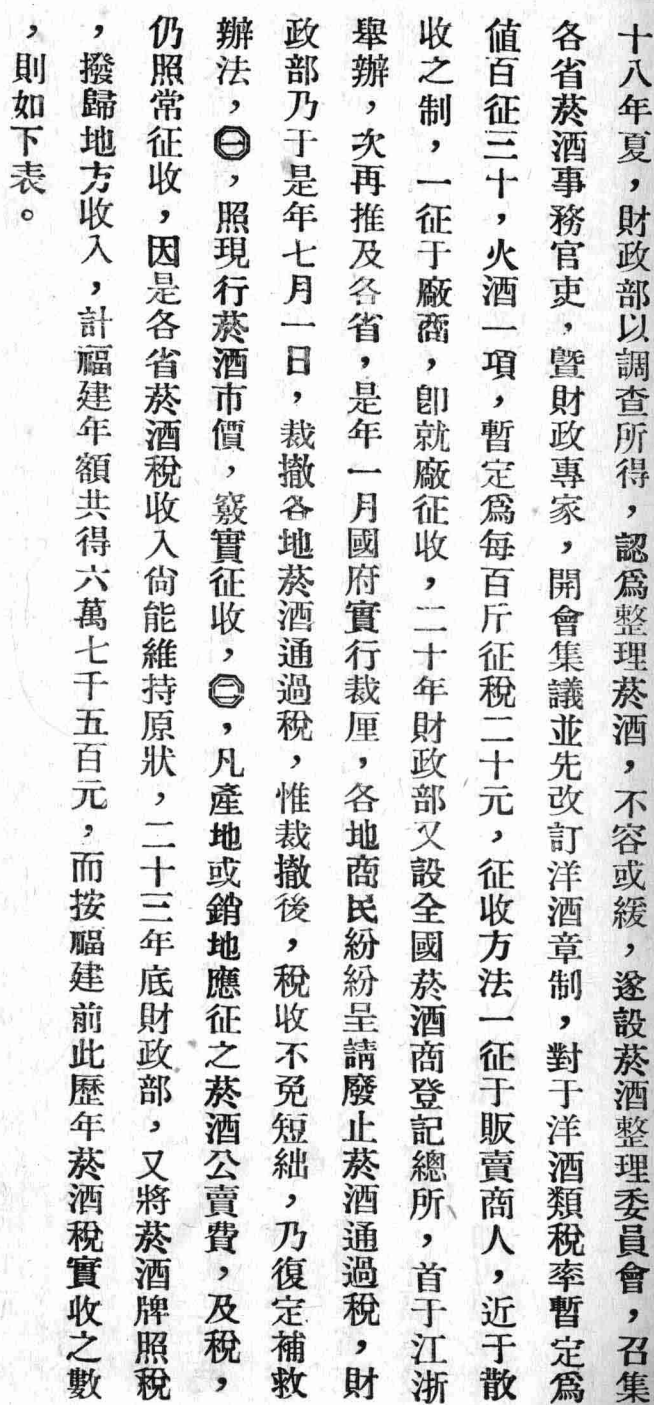 十八年夏，財政部以調查所得，認爲整理菸酒，不容或緩，遂設菸酒整理委員會，召集
各省菸酒事務官吏，暨財政專家，開會集議並先改訂洋酒章制，對于洋酒類稅率暫定爲
值百征三十，火酒一項，暫定爲每百斤征稅二十元，征收方法一征于販賣商人，近于散
收之制，一征于廠商，卽就廠征收，二十年財政部又設全國菸酒商登記總所，首于江浙
舉辦，次再推及各省，是年一月國府實行裁厘，各地商民紛紛呈請廢止菸酒通過稅，財
政部乃于是年七月一日，裁撤各地菸酒通過稅，惟裁撤後，稅收不免短絀，乃復定補救
辦法，㊀，照現行菸酒市價，覈實征收，㊁，凡產地或銷地應征之菸酒公賣費，及稅，
仍照常征收，因是各省菸酒稅收入尙能維持原狀，二十三年底財政部，又將菸酒牌照稅
，撥歸地方收入，計福建年額共得六萬七千五百元，而按福建前此歷年菸酒稅實收之數
，則如下表。